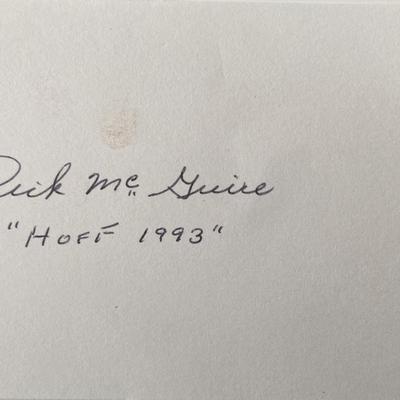 Dick Mc Guire
"HOFF 1993"